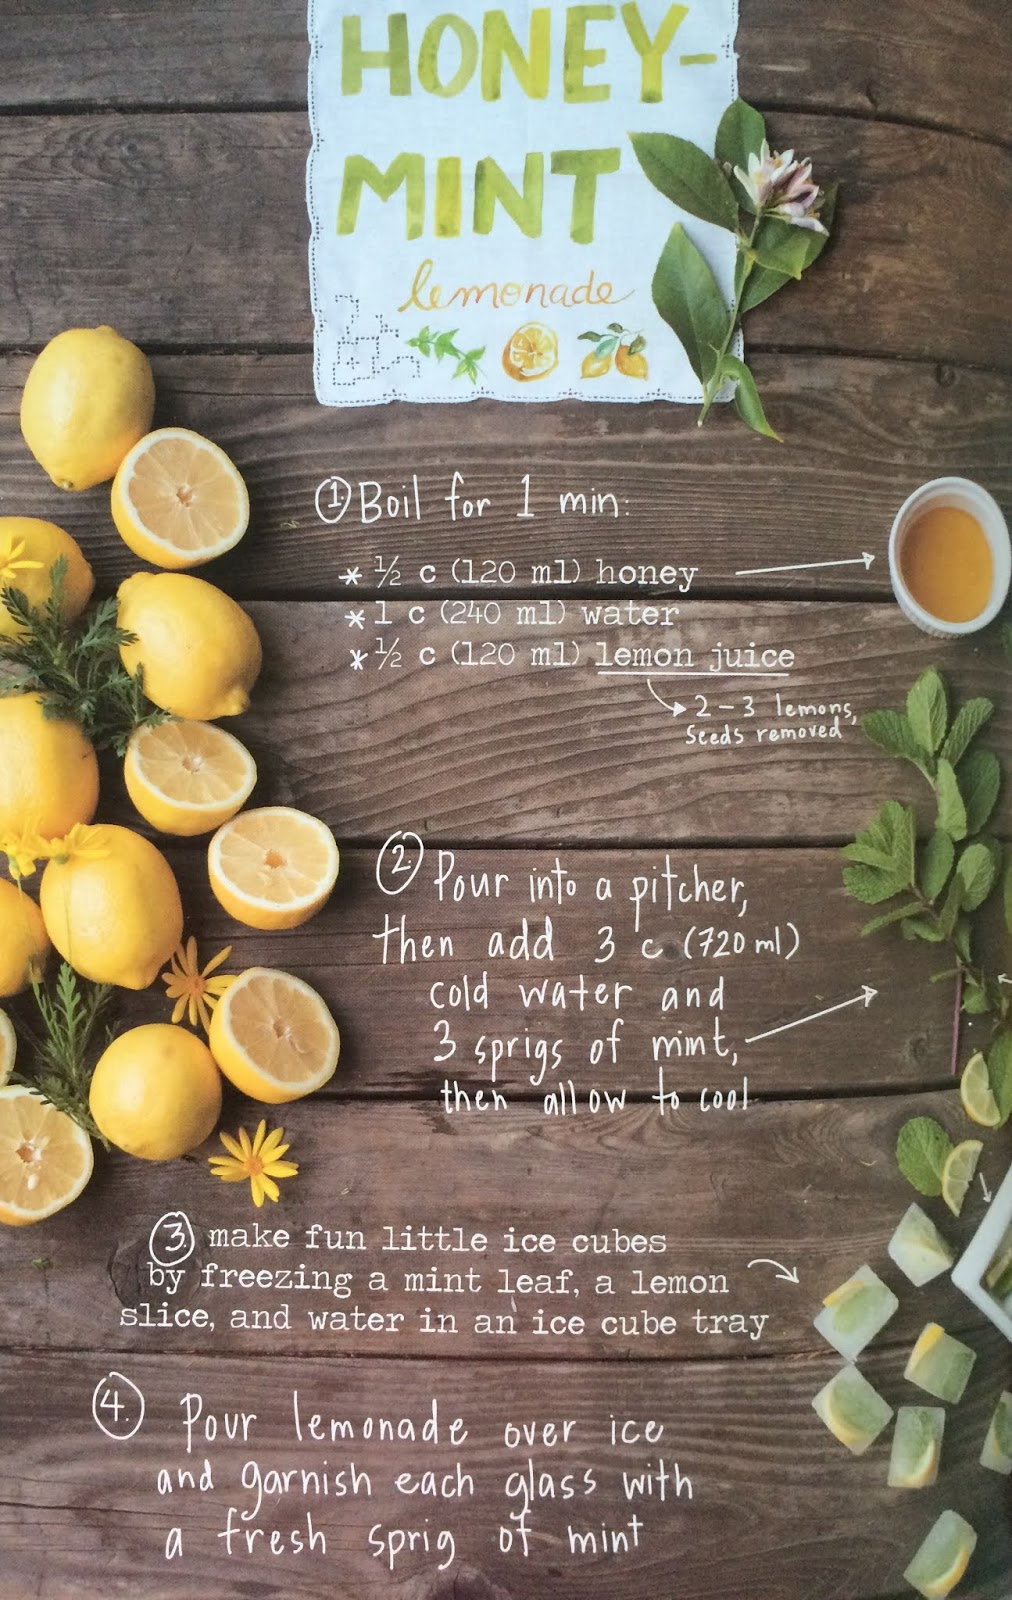 HONEY-
MINT
lemonade
1. Boil for 1 min:
* ½ c (120 ml) honey
* 1 c (240 ml) water
* ½ c (120 ml) lemon juice
2-3 lemons,
seeds removed
2. Pour into a pitcher,
then add 3 c (720 ml)
cold water and
3 sprigs of mint,
then allow to cool
3. make fun little ice cubes
by freezing a mint leaf, a lemon
slice, and water in an ice cube tray
4. Pour lemonade over ice
and garnish each glass with
a fresh sprig of mint